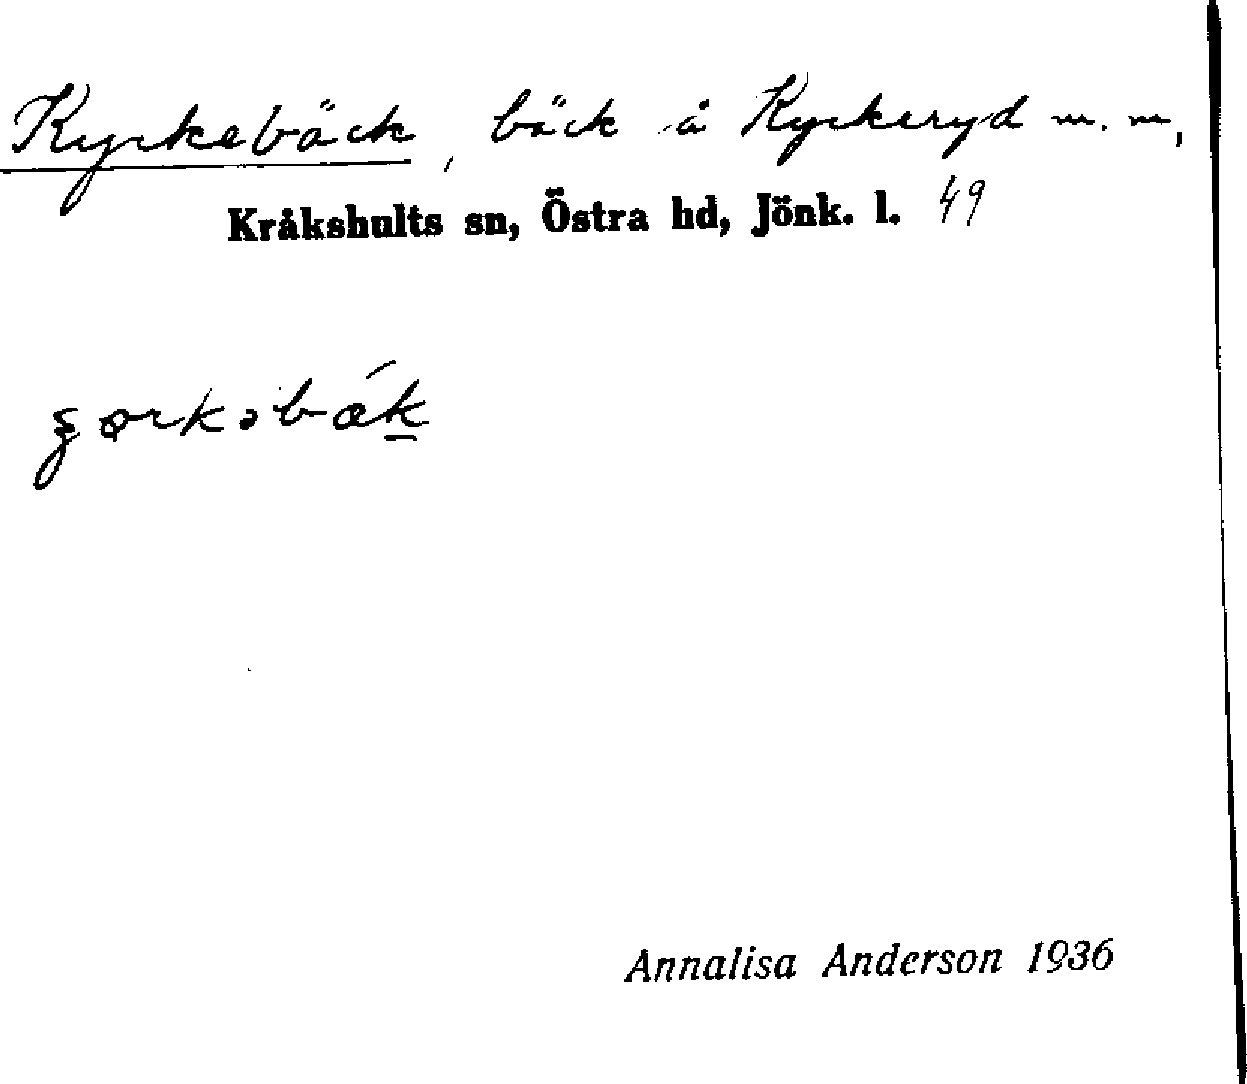 Kyrkebäck, bäck å Kyrkeryd m. m,
Kråkshults sn, Östra hd, Jönk. l. 49
ȿørkəbǽk̲
Annalisa Anderson 1936